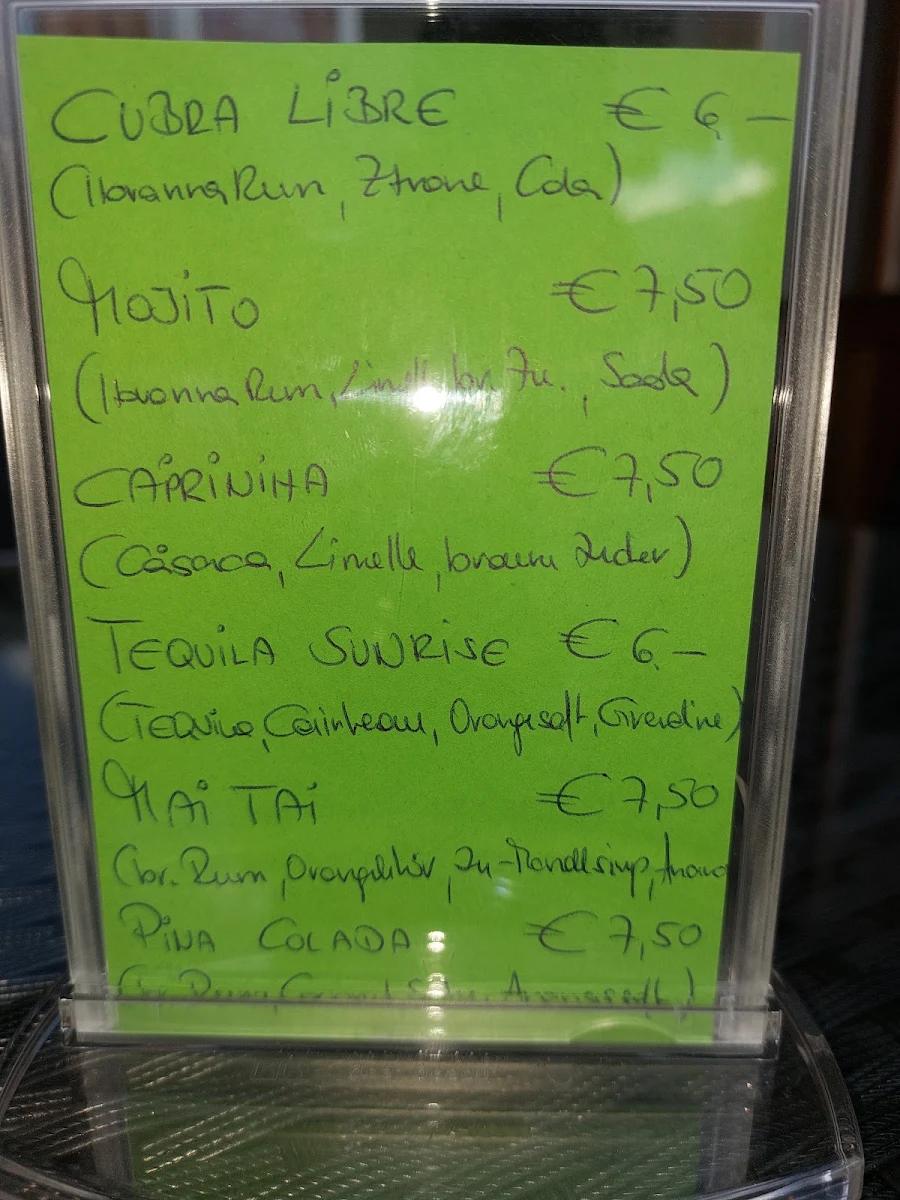 CUBRA LIBRE € 6,—
(Havanna Rum, Zitrone, Cola)
MOJITO € 7,50
(Havanna Rum, Limelle, br. Zu., Soda)
CAPRINIHA € 7,50
(Casaca, Limelle, braun Zucker)
TEQUILA SUNRISE € 6,—
(Tequila, Cointreau, Orangesaft, Grenadine)
MAI TAI € 7,50
(br. Rum, Orangelikör, Zu-Mandelsirup, Anana
PINA COLADA € 7,50
(br. Rum, Ananassaft)